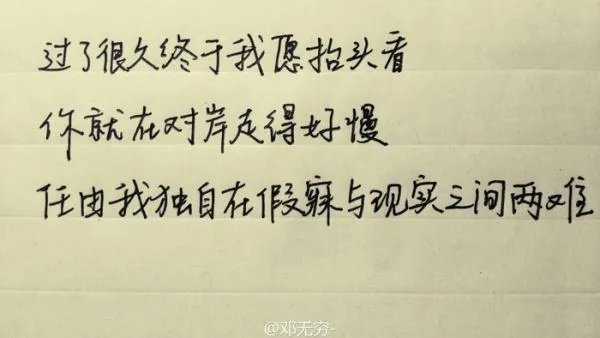 过了很久终于我愿抬头看
你就在对岸走得好慢
任由我独自在假寐与现实之间两难
@邓无穷-